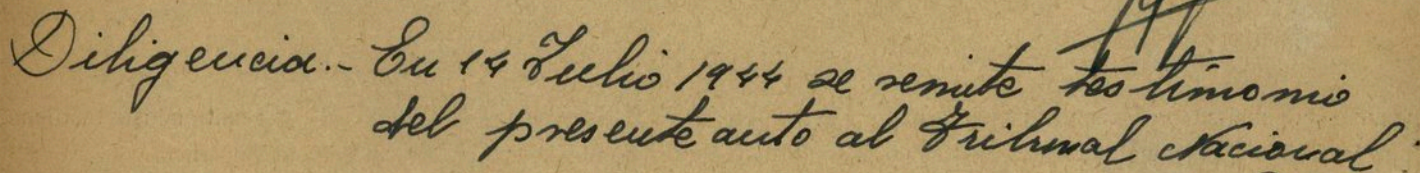 Diligencia.- En 14 Julio 1944 se remite testimonio
del presente auto al Tribunal Nacional.